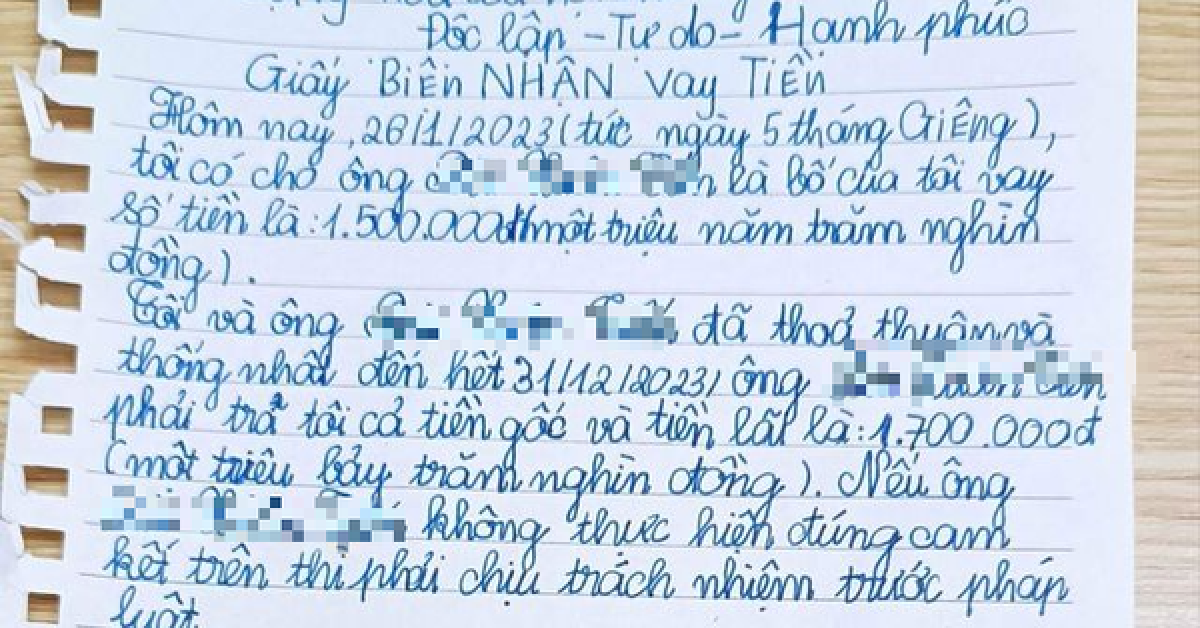 Độc lập - Tự do - Hạnh phúc
Giấy Biên NHẬN Vay TIỀN
Hôm nay, 26/1/2023 (tức ngày 5 tháng Giêng),
tôi có cho ông là bố của tôi vay
số tiền là: 1.500.000đ một triệu năm trăm nghìn
đồng).
Tôi và ông đã thoả thuận và
thống nhất đến hết 31/12/2023, ông
phải trả tôi cả tiền gốc và tiền lãi là: 1.700.000đ
(một triệu bảy trăm nghìn đồng). Nếu ông
không thực hiện đúng cam
kết trên thì phải chịu trách nhiệm trước pháp
luật.